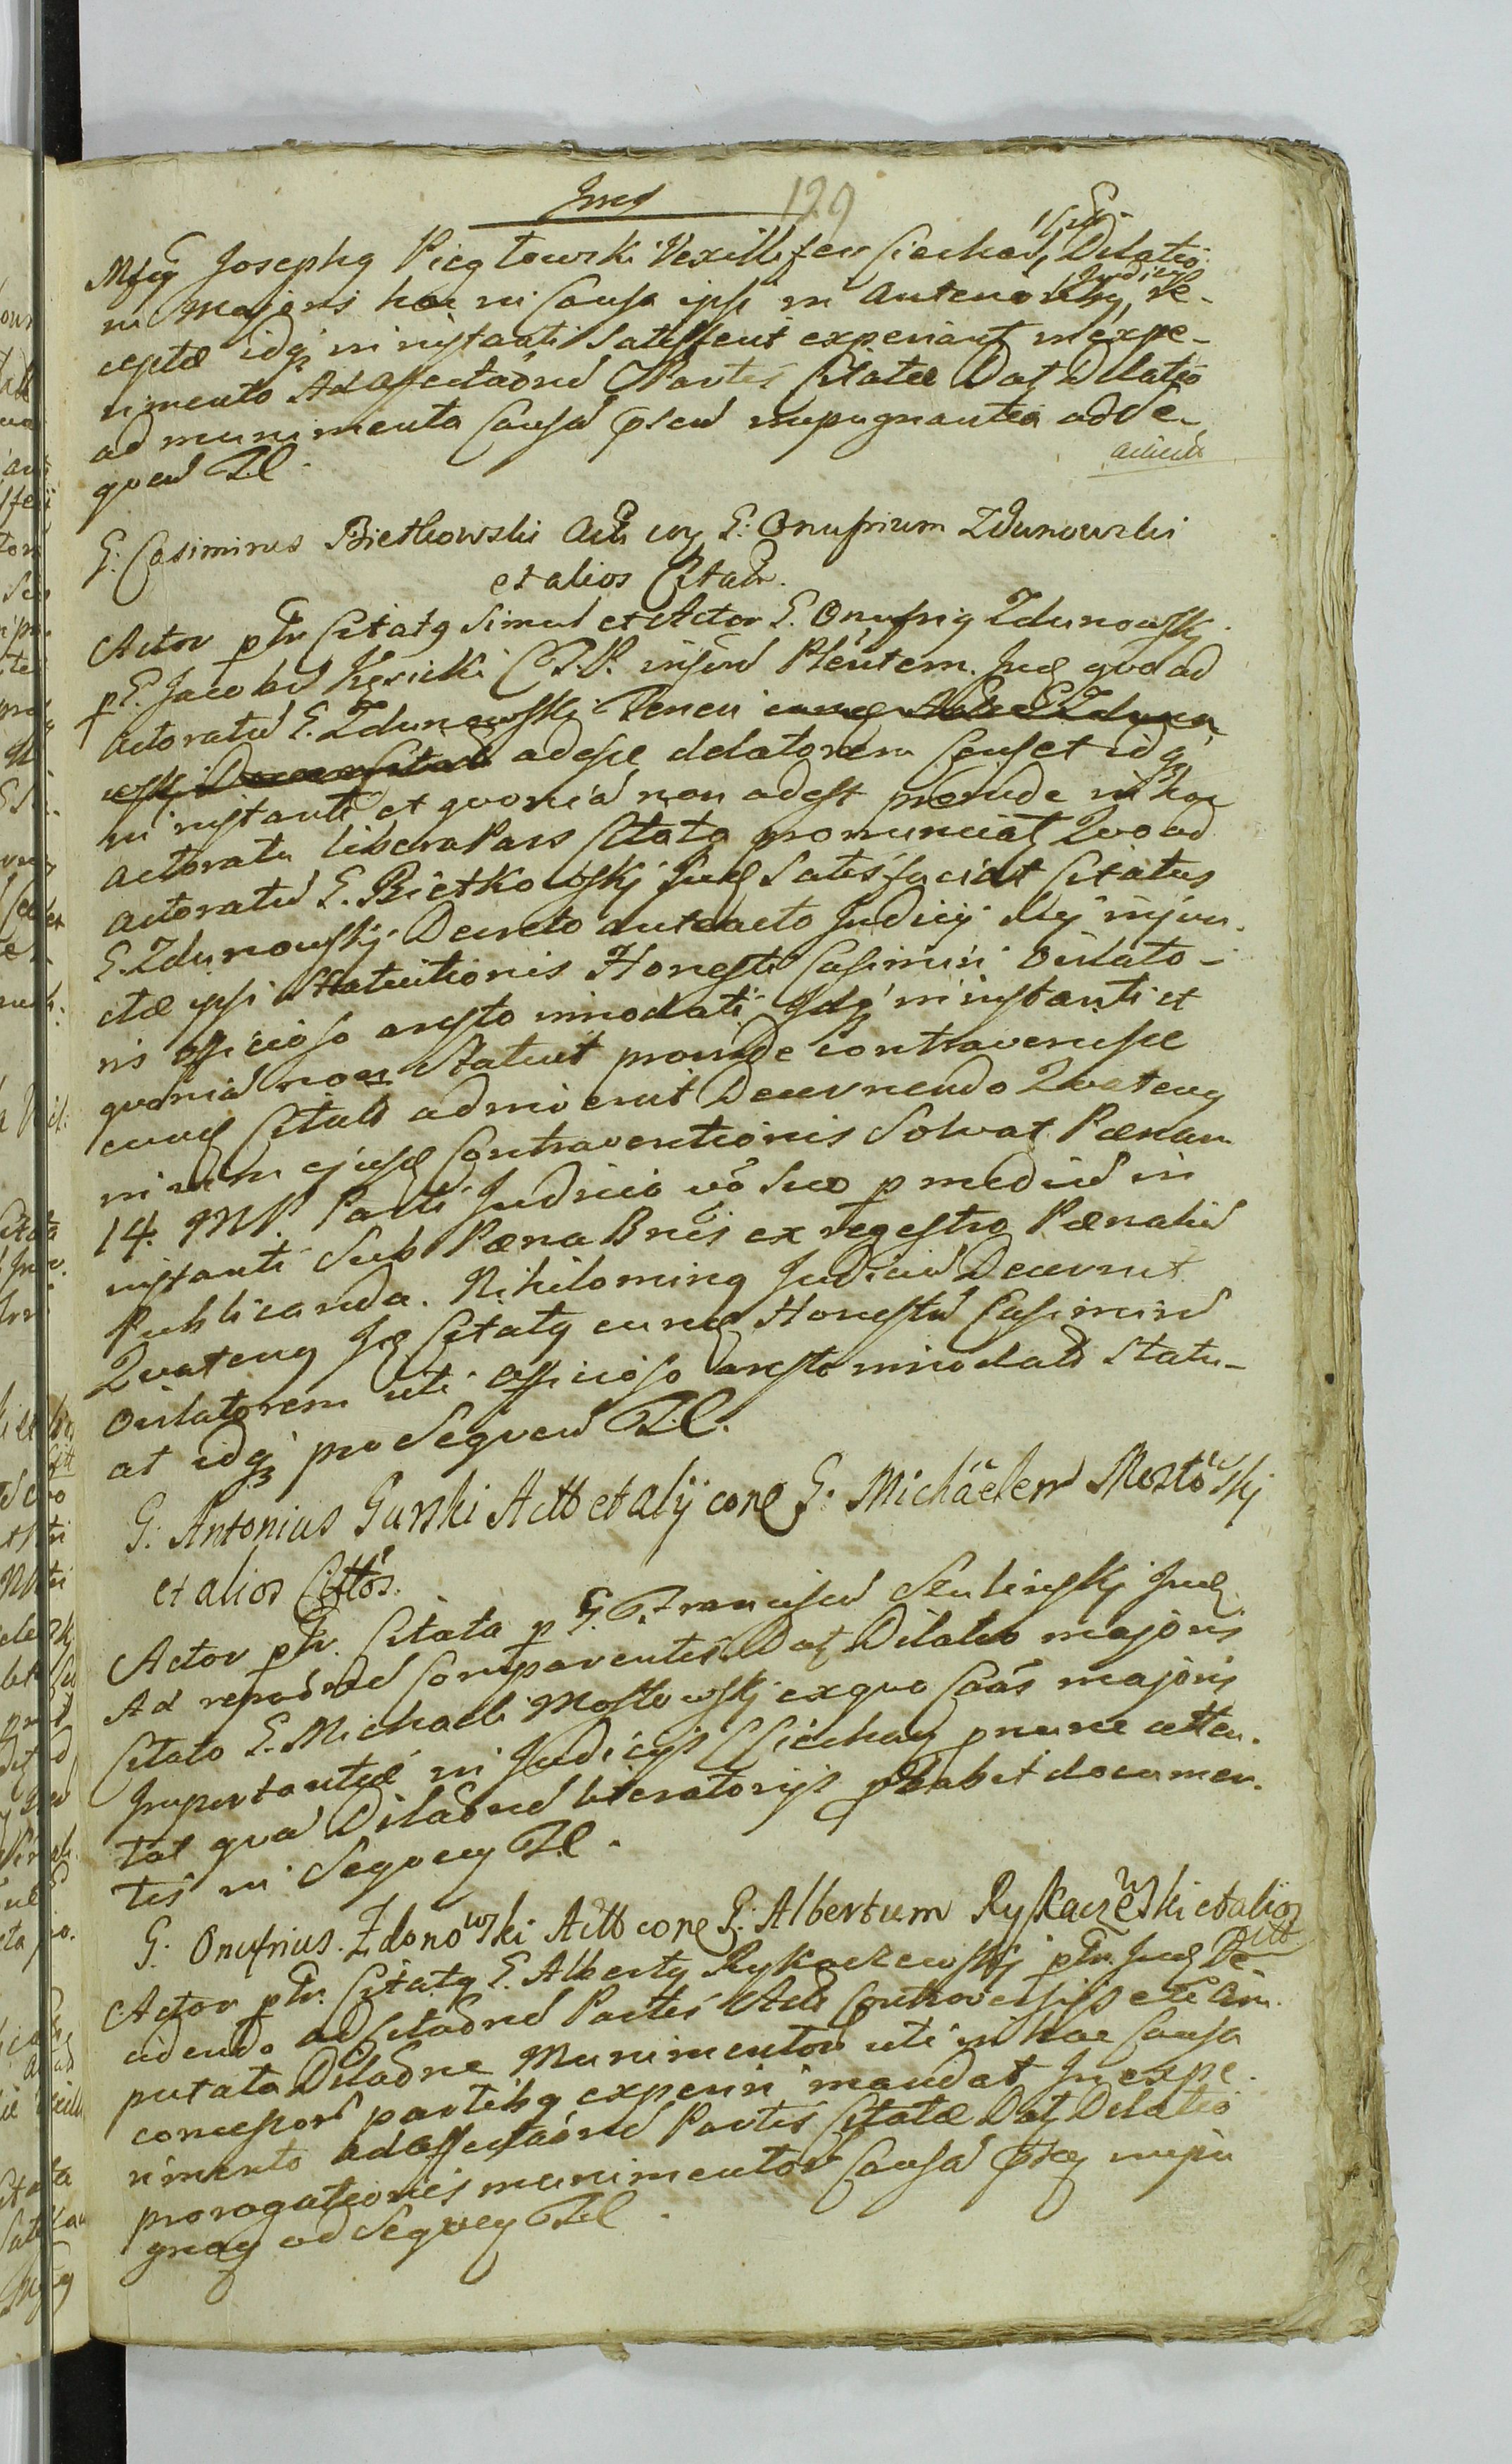 129
Mfcg Josephg Piegtowski Vexillifer Ciechan, Dilatio
ni Majoris hac in Causa ipsi in anteriori Judicio re-
ceptæ idq in instanti Satisferit experiant in expe-
rimento Ad affectaōnē Partis Citatæ Dat Dilatio
ad munimenta Causā pſen impugnantia ad Se-
quen T.C.
G. Casimirus Bietkowski Act con G: Onufrium Zdunowski
et alios Citatu.
Actor ptr Citatg Simul et Actor G. Onufrig Zdunowskj
p G. Jacobū Kęsicki C.T.P. insūd Plēntem. Jud quoad
Actoratū G. Zdunowskj Teneri
adesse delatorem Censet idq
in instanti et quoniā non adest proinde in hoc
actoratu libera Pars Citata pronunciat Quoad
actoratū G. Bietkowskj Jud Satisfaciat Citatus
G. Zdunowskj Decreto anteacto Judicij Sui injun-
ctæ ipsi Statuitionis Honesti Casimiri Oculato-
ris officioso aresto innodati Idq in instanti et
quoniā non Statuit proinde contravenisse
eund Citatū admiserit Decernendo Quateng
in vim ejusd Contraventionis Solvat Pœnam
14. M.P. Parti Judicio vō Suo p mediū in
instanti Sub Pœna Bnis ex regestro Pœnaliū
Publicanda. Nihilominq Judiciū Decernit
Quateng Id Citatg eund Honestū Casimirū
Oculatorem uti officioso aresto innodatū Statu-
at idq pro Sequen T.C.
G: Antonius Gurski Actt et alij cone G: Michäelem Mostowskj
et alios Cittōs.
Actor ptr. Citata p G. Franciscū Szulinskj Jud
Ad repoōnē Comparentis Dat Dilatio majoris
Citato G. Michaeli Mostowskj ex quo Caās majoris
Importantiæ in Judicijs Ciechan p nunc atten-
tat quā Dilaōnē literatorijs pbabit documen-
tis in Sequen T.C.
G: Onufrius Zdonowski Actt cone G: Albertum Rykaczewski et alios
Citt
Actor ptr. Citatg G. Albertg Rykaczewskj ptr. Jud De-
cidendo ad Citaōnē Partis Act Controversijs etc Am-
putata Dilaōne Munimentorū uti in hac Causa
concessorū partibg experiri mandat In expe-
rimento ad affectaōnē Partis Citatæ Dat Dilatio
prorogationis munimentorū Causā ptē impu
gnan ad Sequen T.C.